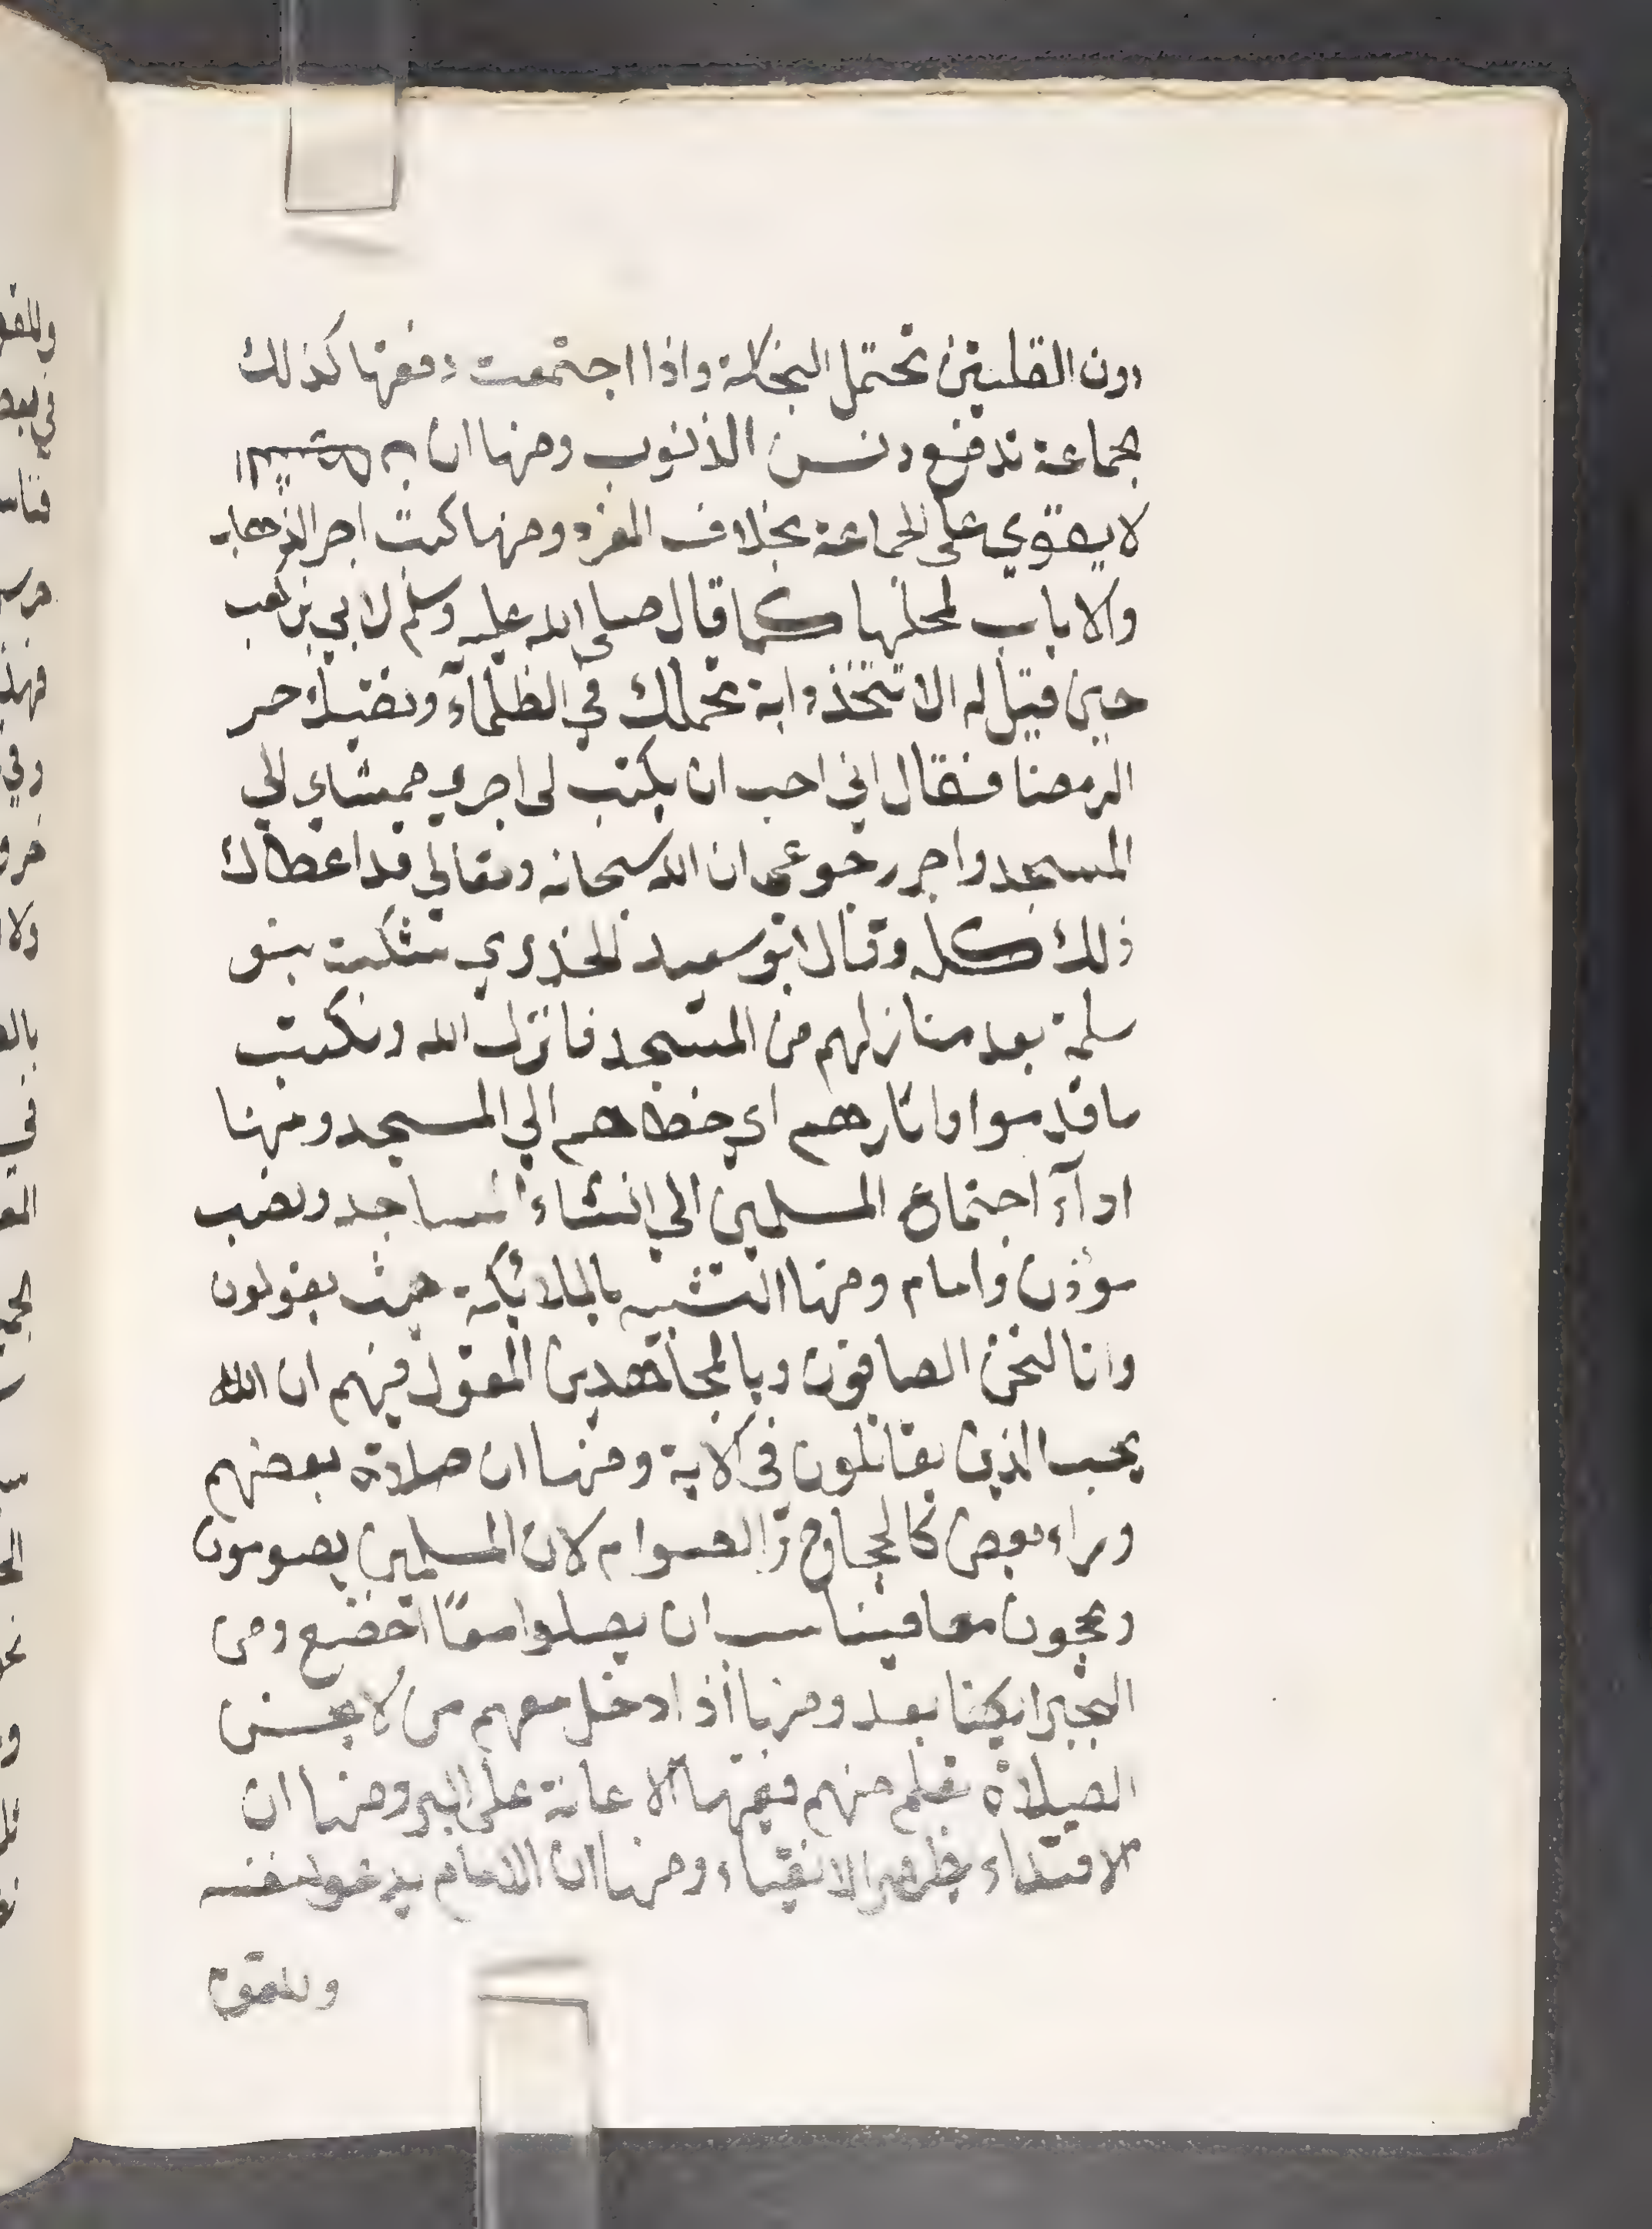 دون القلتين تحتمل النجاسة واذا اجتمعت دفعتها كذلك
الجماعة تدفع دنس الذنوب ومنها ان
لا يقوي على الجماعة بخلاف المفرد ومنها كتب اجر الذهاب
والاياب لمحلها كما قال صلى الله عليه وسلم لابي بن كعب
حين قيل له الا تتخذ دابة تحملك في الظلمآء وتقيك حر
الرمضا فقال اني احب ان يكتب لى اجري ممشاي الي
المسجد واجر رجوعى ان الله سبحانه وتعالي قد اعطاك
ذلك كله وقال ابو سعيد الخدري شكت بنو
سلمة بعد منازلهم من المسجد فانزل الله ونكتب
ما قدموا واثارهم اي خطاهم الي المسجد ومنها
ادآء اجتماع المسلمين الي انشاء مساجد ونصب
موذن وامام ومنها التشبه بالملائكة حيث يقولون
وانا لنحن الصافون وبالمجاهدين المقول فيهم ان الله
يحب الذين يقاتلون في الاية ومنها ان صلاة بعضهم
وراء بعض كالحجاج والصوام لان المسلمين يصومون
ويحجون معا فيناسب ان يصلوا معًا ومن
بعد ومنها اذا دخل معهم من لا يحسن
الصلاة تعلم منهم ففيها الاعانة على البر ومنها ان
الاقتداء الاتقياء ومنها ان الامام يدعو لنفسه
وللقوم